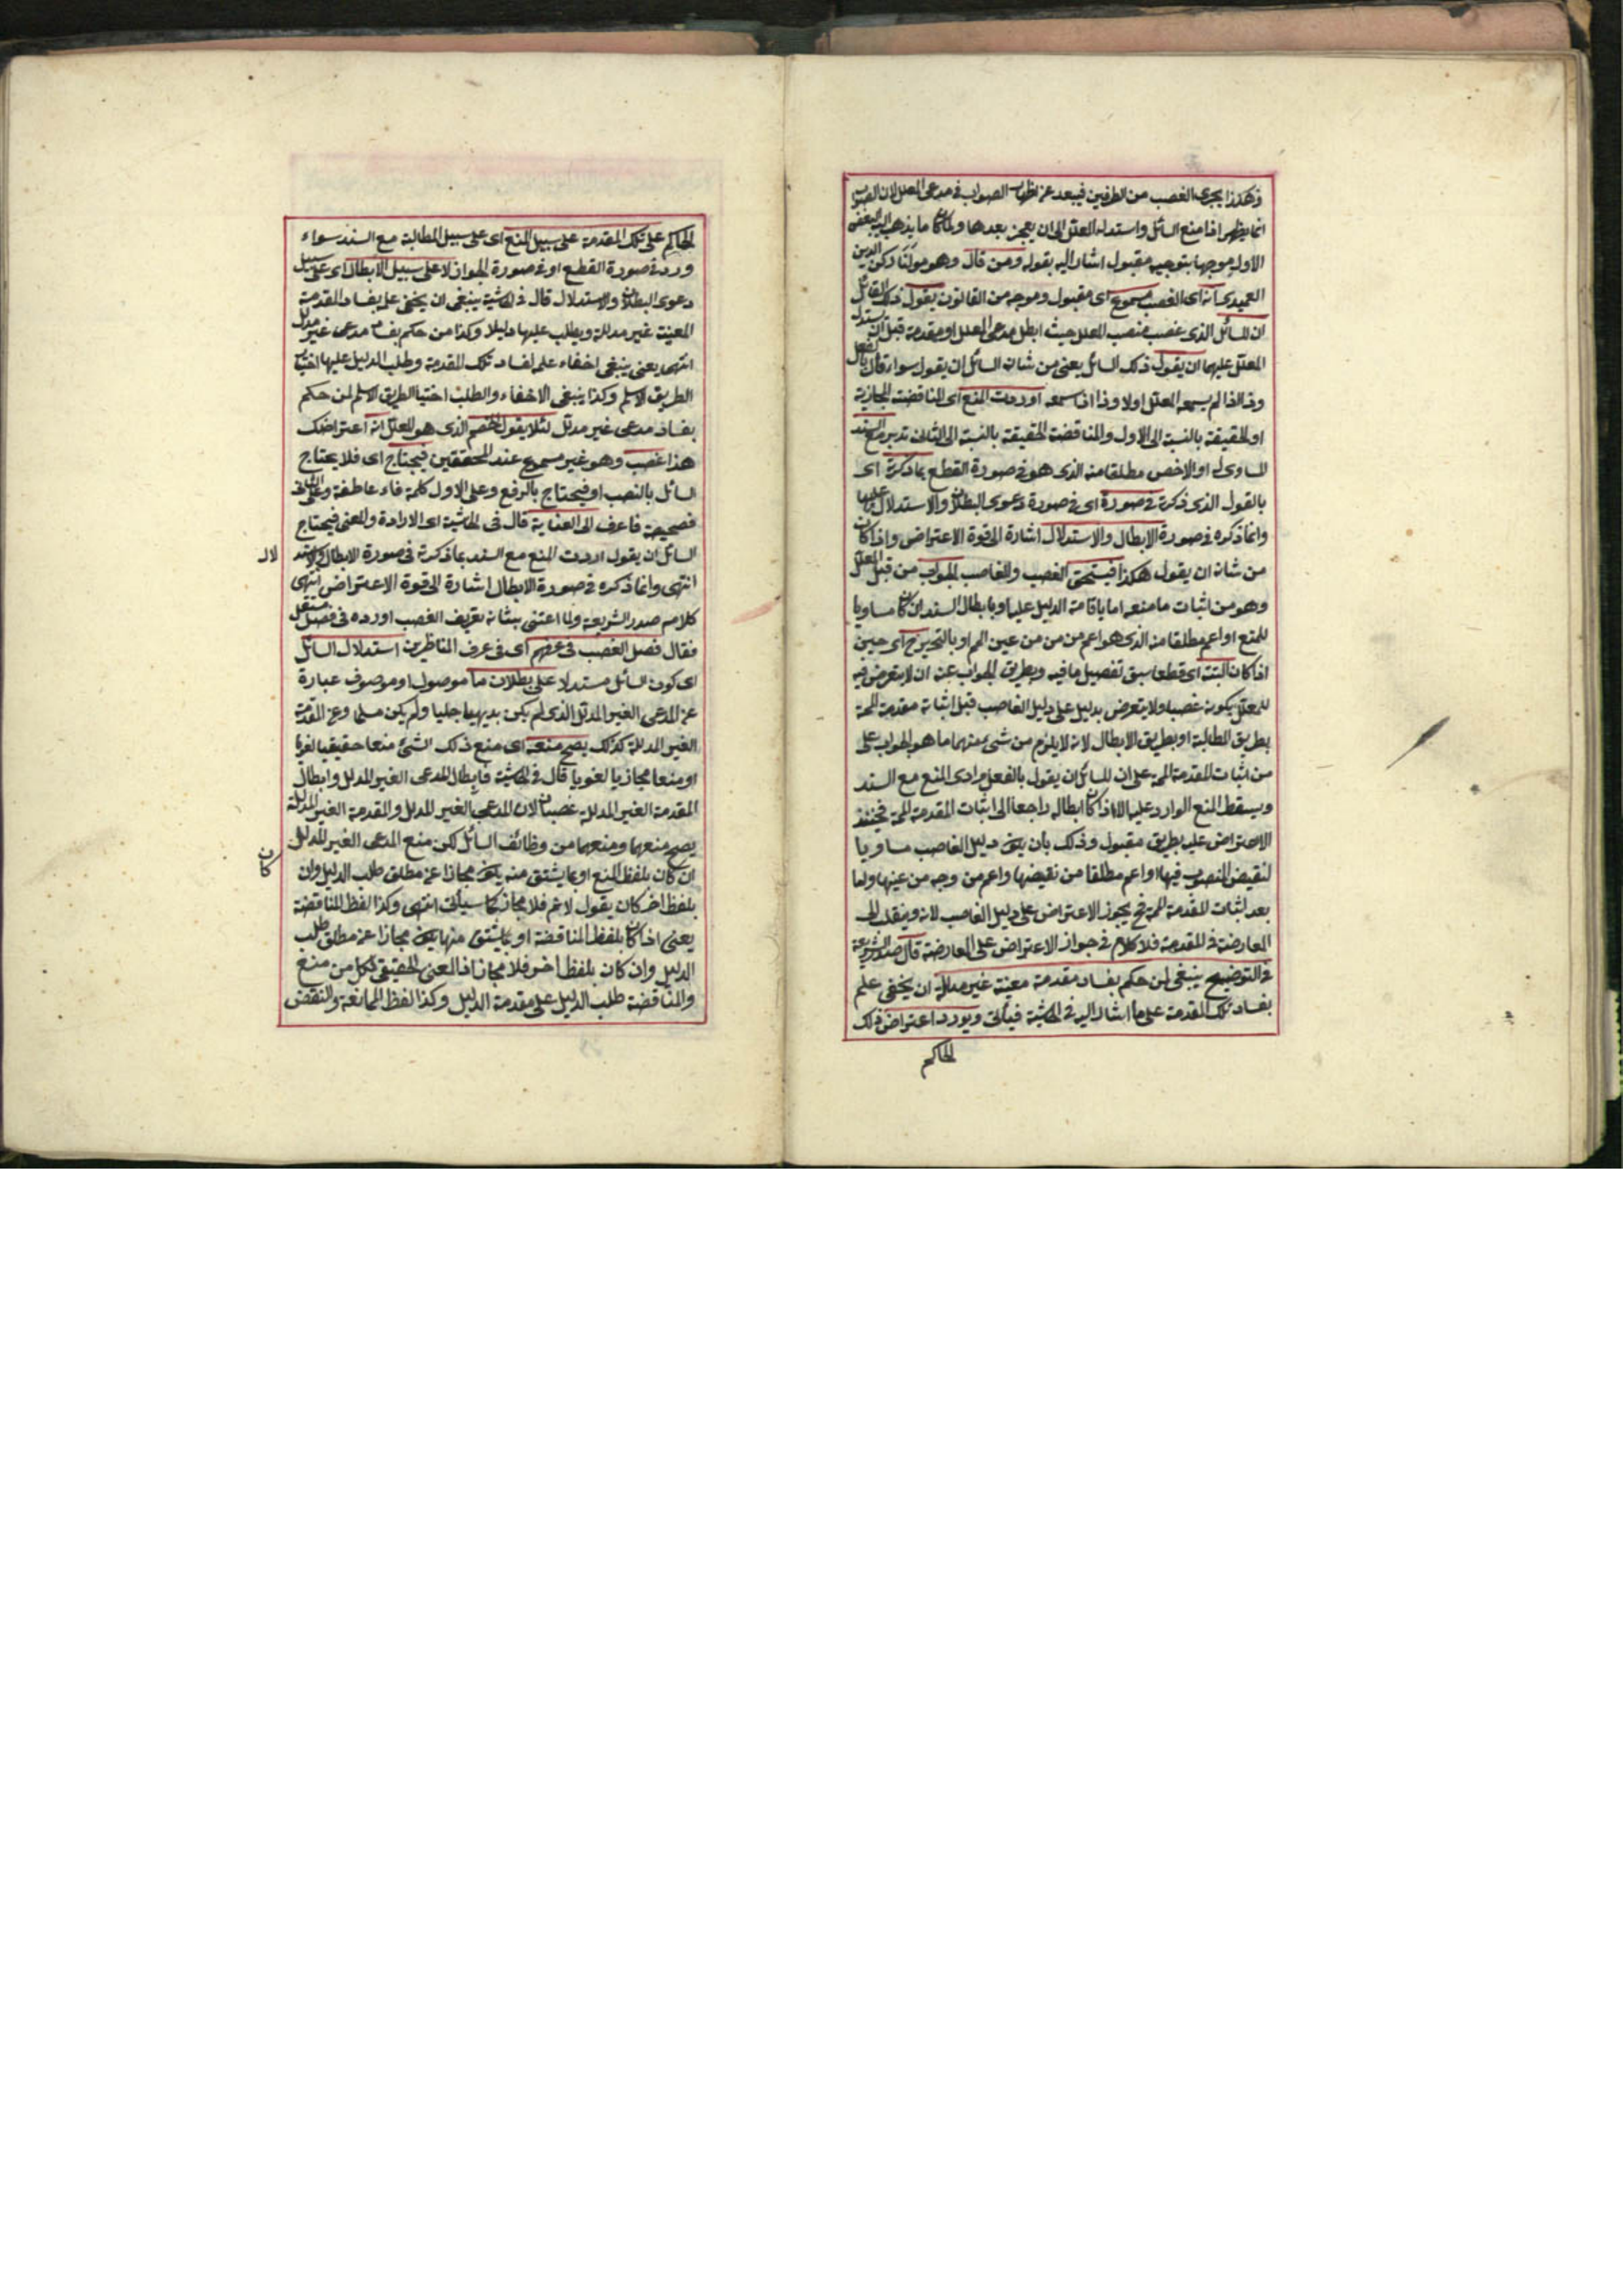 وهكذا يجرى الغصب من الطرفين فيبعد عن اظهار الصواب فى مدعى المعلل لان الصواب
انما يظهر اذا منع السائل واستدل المعلل الى ان يعجز بعدها ولما كان ما يذهب اليه البعض
الاول موجها بتوجيه مقبول اشار اليه بقوله ومن قال وهو مولنا ركن الدين
العميدى انه اى الغصب مسموع اى مقبول وموجه من القانون يقول ذلك القائل
ان للسائل الذى غصب منصب المعلل حيث ابطل مدعى المعلل او مقدمة قبل ان يستدل
المعلل عليهما ان يقول ذلك السائل يعنى من شان السائل ان يقول سواء قال بالفعل
وذا اذا لم يسمعه المعلل اولا وذا اذا سمعه اوردت المنع اى المناقضة المجازية
او الحقيقة بالنسبة الى الاول والمناقضة الحقيقة بالنسبة الى الثانى تدبر مع السند
المساوى له او الاخص مطلقا منه الذى هو فى صورة القطع بما ذكرته اى
بالقول الذى ذكرته فى صورة اى فى صورة دعوى البطلان والاستدلال عليها
وانما ذكره فى صورة الابطال والاستدلال اشارة الى قوة الاعتراض واذا كان
من شانه ان يقول هكذا فيستحق الغصب والغاصب الجواب من قبل المعلل
وهو من اثبات ما منعه اما باقامة الدليل عليه او بابطال السند ان كان مساويا
للمنع او اعم مطلقا منه الذى هو اعم من من من عين الم او بالتحرير ح اى حين
اذا كان البتة اى قطعا سبق تفصيل ما فيه وبطريق الجواب عنه ان لا يتعرض فيه
للمعلل يكون غصبا ولا يتعرض بدليل على دليل الغاصب قبل اثباته مقدمة المم
بطريق المطالبة او بطريق الابطال لانه لا يلزم من شئ منهما ما هو الجواب على
من اثبات المقدمة المم على ان للسائل ان يقول بالفعل مرادى المنع مع السند
ويسقط المنع الوارد عليها الا اذا كان ابطاله راجعا الى اثبات المقدمة المم فحينئذ
الاعتراض عليه بطريق مقبول وذلك بان يكون دليل الغاصب مساويا
لنقيض المنصوب فيها او اعم مطلقا من نقيضها واعم من وجه من عينها واما
بعد اثبات المقدمة المم فح يجوز الاعتراض على دليل الغاصب لانه ينقلب الى
المعارضة فى المقدمة فلا كلام فى جواز الاعتراض على المعارضة قال صدر الشريعة
فى التوضيح ينبغى لمن حكم بفساد مقدمة معينة غير مدللة ان يخفى علم
بفساد تلك المقدمة على ما اشار اليه فى الحاشية فياتى ويورد اعتراض ذلك
الحاكم
الحاكم على تلك المقدمة على سبيل المنع اى على سبيل المطالبة مع السند سواء
ورد فى صورة القطع او فى صورة الجواز لا على سبيل الابطال اى على سبيل
دعوى البطلان والاستدلال قال فى الحاشية ينبغى ان يخفى علم بفساد المقدمة
المعينة غير مدللة ويطلب عليها دليلا وكذا من حكم بفساد مدعى غير مدلل
انتهى يعنى ينبغى اخفاء علم لفساد تلك المقدمة وطلب الدليل عليها اختيار
الطريق الاسلم وكذا ينبغى الاخفاء والطلب اختيا الطريق الاسلم لمن حكم
بفساد مدعى غير مدلل لئلا يقول الخصم الذى هو المعلل انه اعتراضك
هذا غصب وهو غير مسموع عند المحققين فيحتاج اى فلا يحتاج
السائل بالنصب او فيحتاج بالرفع وعلى الاول كلمة فاء عاطفة وعلى الثانى
فصيحية فاعرف الى العناية قال فى الحاشية اى الارادة والمعنى فيحتاج
السائل ان يقول اردت المنع مع السند بما ذكرته فى صورة الابطال والاستد
لال
انتهى وانما ذكره فى صورة الابطال اشارة الى قوة الاعتراض انتهى
كلام صدر الشريعة ولما اعتنى بشانه تعريف الغصب اورده فى فصل مستقل
فقال فصل الغصب فى عرفهم اى فى عرف المناظرين استدلال السائل
اى كون السائل مستدلا على بطلان ما موصول او موصوف عبارة
عن المدعى الغير المدلل الذى لم يكن بديهيا جليا ولم يكن مسلما وعن المقدمة
الغير المدللة كذلك يصح منعه اى منع ذلك الشئ منعا حقيقيا لغويا
او منعا مجازيا لغويا قال فى الحاشية فابطال المدعى الغير المدلل وابطال
المقدمة الغير المدللة غصبان لان المدعى الغير المدلل والمقدمة الغير المدللة
يصح منعهما ومنعهما من وظائف السائل لكن منع المدعى الغير المدلل
ان كان بلفظ المنع او بما يشتق منه يكون مجازا عن مطلق طلب الدليل وان
كان
بلفظ اخر كان يقول لانم فلا مجاز كما سيأتى انتهى وكذا لفظ المناقضة
يعنى اذا كان بلفظ المناقضة او بما يشتق منها يكون مجازا عن مطلق طلب
الدليل وان كان بلفظ اخر فلا مجاز اذ المعنى الحقيقى لكل من منع
والمناقضة طلب الدليل على مقدمة الدليل وكذا لفظ الممانعة والنقض